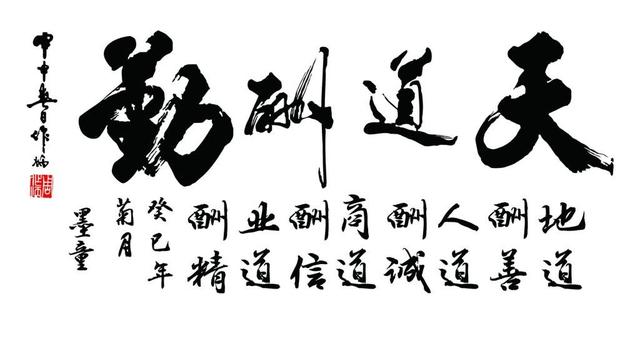 天道酬勤
地道酬善
人道酬誠
商道酬信
业道酬精
癸巳年
菊月
墨童
甲申春日作